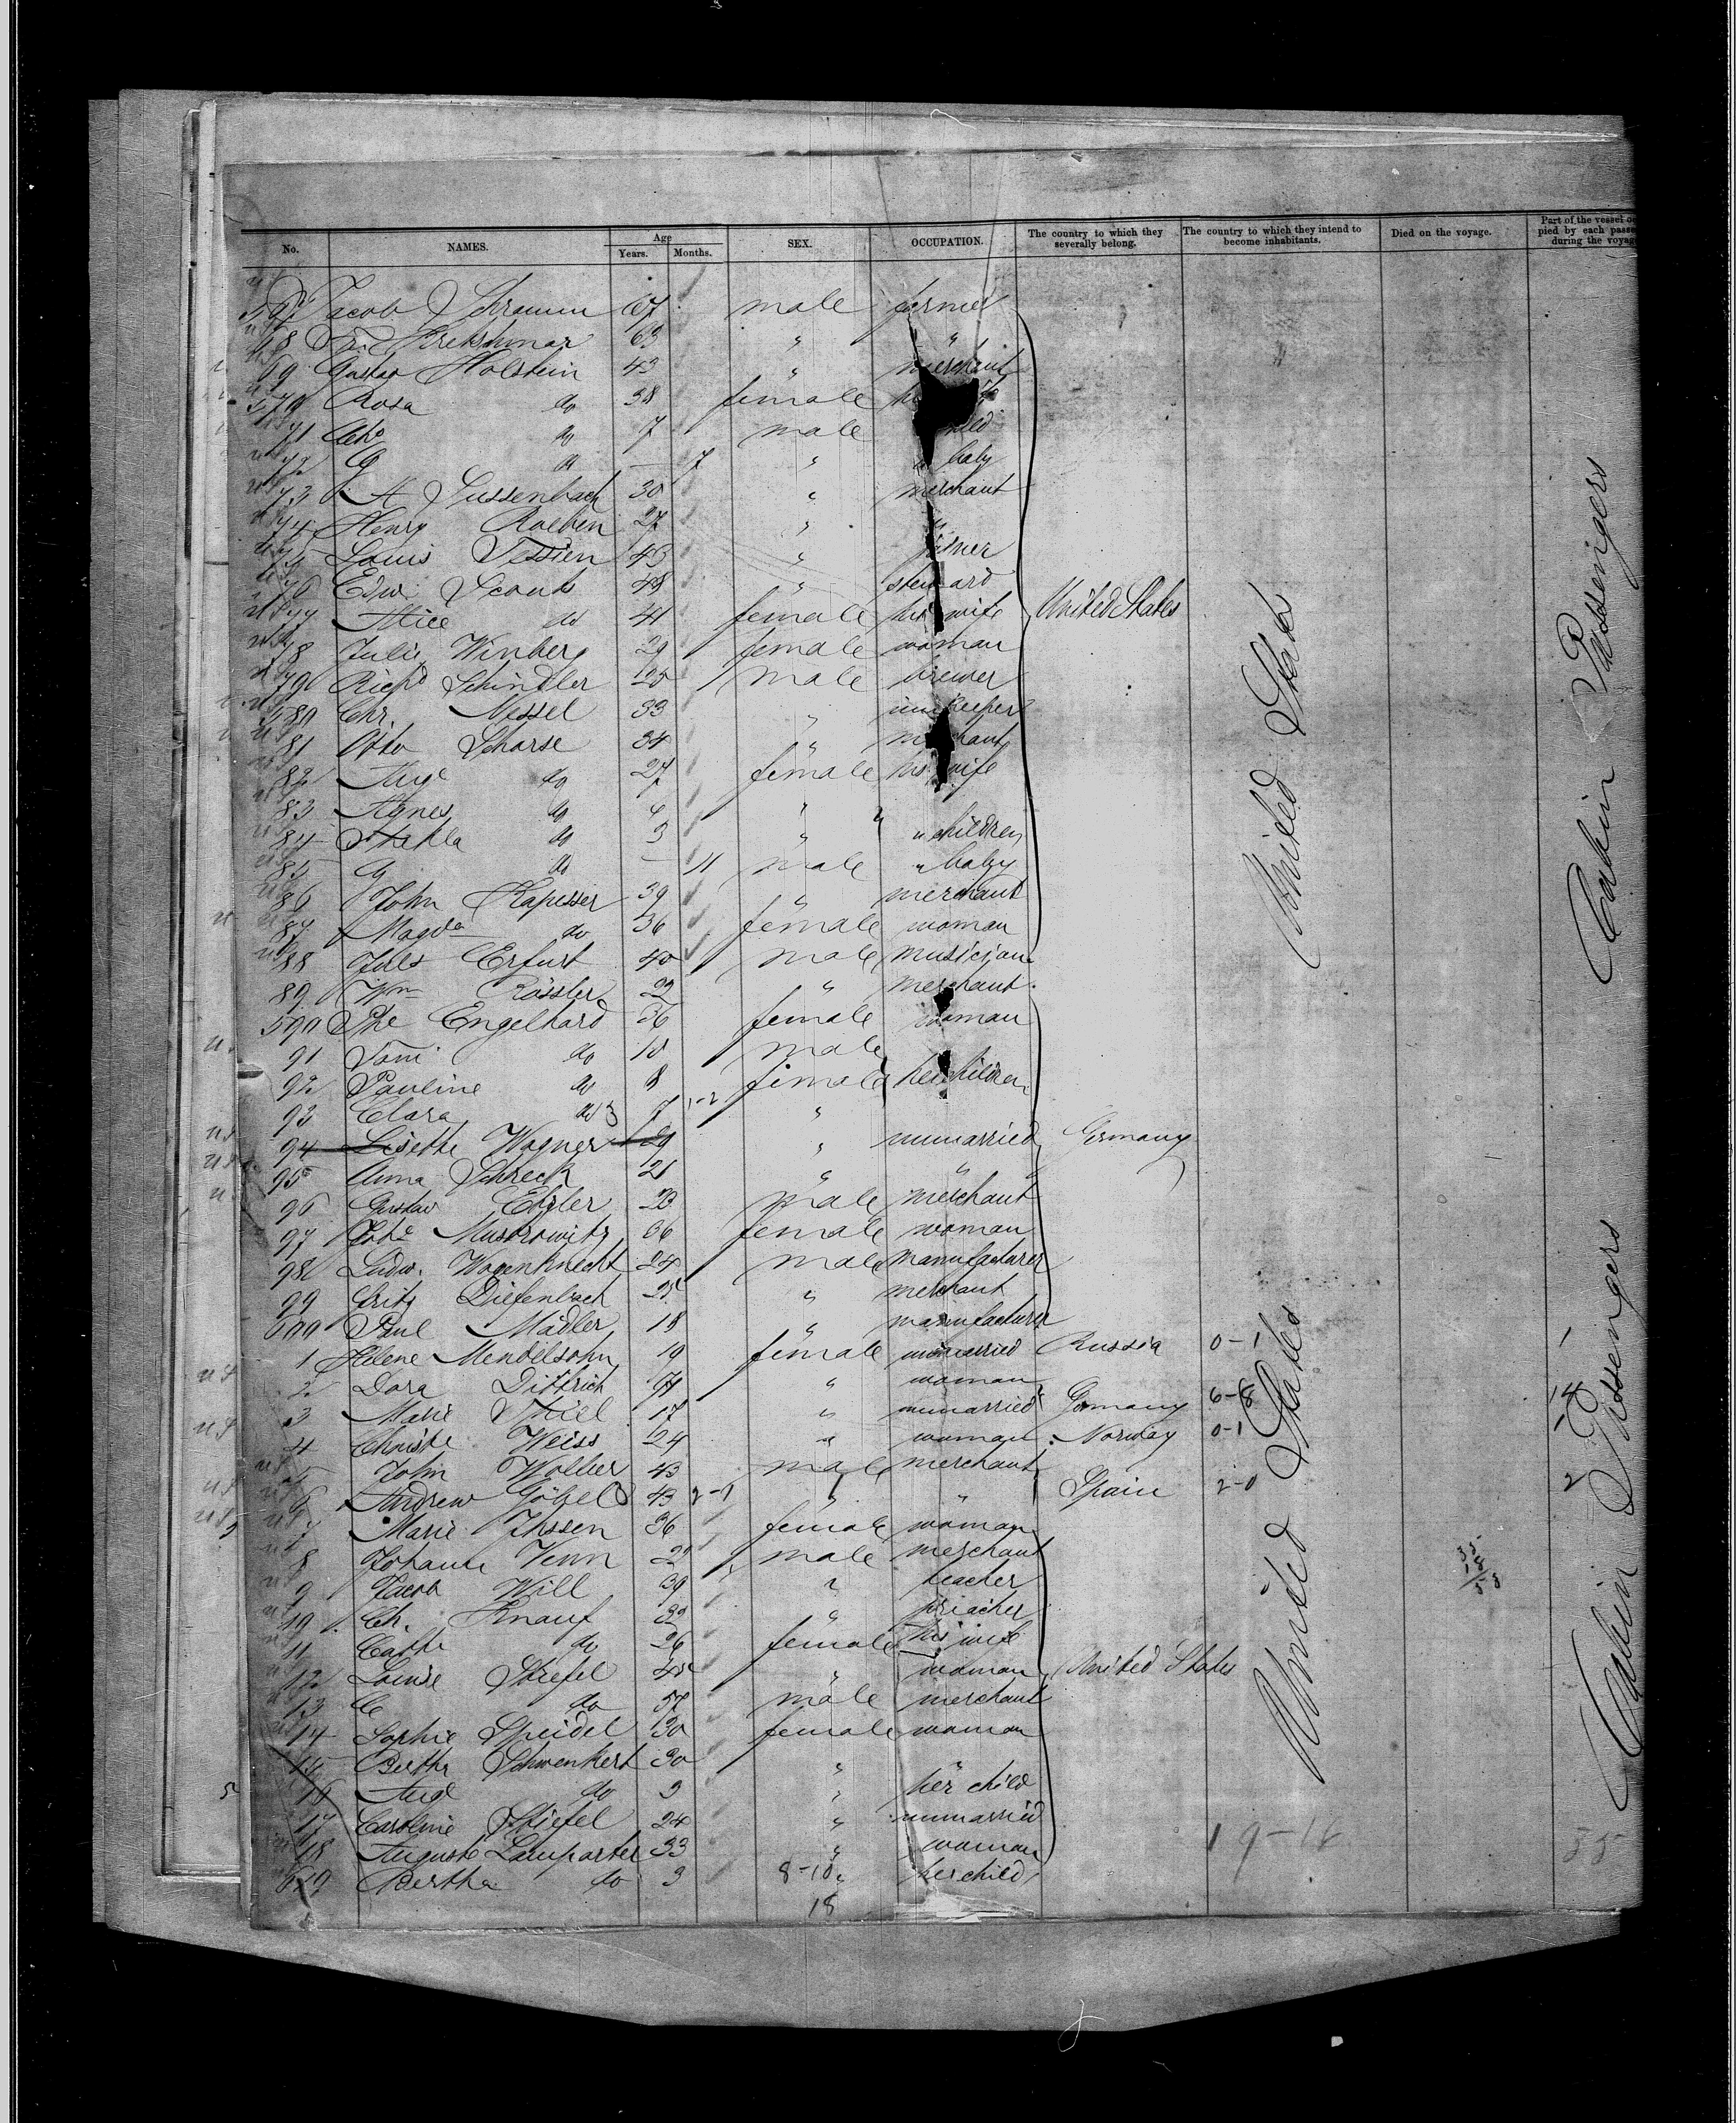 No. NAMES. Age Years. Months. SEX. OCCUPATION. The country to which they severally belong. The country to which they intend to become inhabitants. Died on the voyage. Part of the vessel during the voyage
567 Jacob Schramm 67 male farmer
68 Fr. Kretshmar 63 " "
69 Gustav Holstein 43 " merchant
570 Rosa do 38 female
71 do 7 male
72 G do — 7 " baby
73 A Sussenbach 30 " merchant
74 Henry Roeben 27 " "
75 Louis Tessien 45 "
76 Edw. Scouts 48 " steward
77 Alice do 41 female his wife United States
78 Julie Winberg 29 female woman
79 Richd Schindler 25 male brewer
580 Chr. Messel 33 " innkeeper
81 Otto Scharse 34 " merchant
82 Auge do 27 female his wife
83 Agnes do "
84 Thekla do 3 " " children
85 G do — 11 male " baby
86 John Kapesser 39 " merchant
87 Magda do 36 female woman
88 Erfurt 40 male musician
89 Wm Rössler 22 " merchant
590 Engelhard 36 female woman
91 Toni do 10 male
92 Pauline do 8 female her children
93 Clara do 7 "
94 Lisette Wagner 29 " unmarried Germany
95 Anna Schreck 21 " "
96 Gustav Ehler 23 male merchant
97 36 female woman
98 Ludw. Wagenknecht 24 male manufacturer
99 Fritz Diefenbach 25 " merchant
600 Paul Mädler 18 " manufacturer
1 Helene Mendelsohn 19 female unmarried Russia 0-1 1
2 Dora Dittrich " woman
3 Marie Thiel 17 " unmarried Germany 6-8 14
4 Christe Weiss 24 " woman Norway 0-1 1
5 John Wolber 43 male merchant
6 Andrew 43 " " Spain 2-0 2
7 Marie Thssen 36 female woman
8 Johann Venn male merchant
9 Jacob Will 39 " teacher
10 Ch. Knauf 32 " preacher
11 Cathe do 26 female his wife
12 Louise Stiefel " woman United States
13 C do 57 male merchant
14 Sophie Speidel 30 female woman
15 Bertha Schwenkert 30 " "
16 Auge do 3 " her child
17 Caroline Stiefel 24 " unmarried
18 Auguste Lamparter 33 " woman
619 Bertha do 3 " her child
8-10
18
United States
United States
Cabin Passengers
Cabin Passengers
35